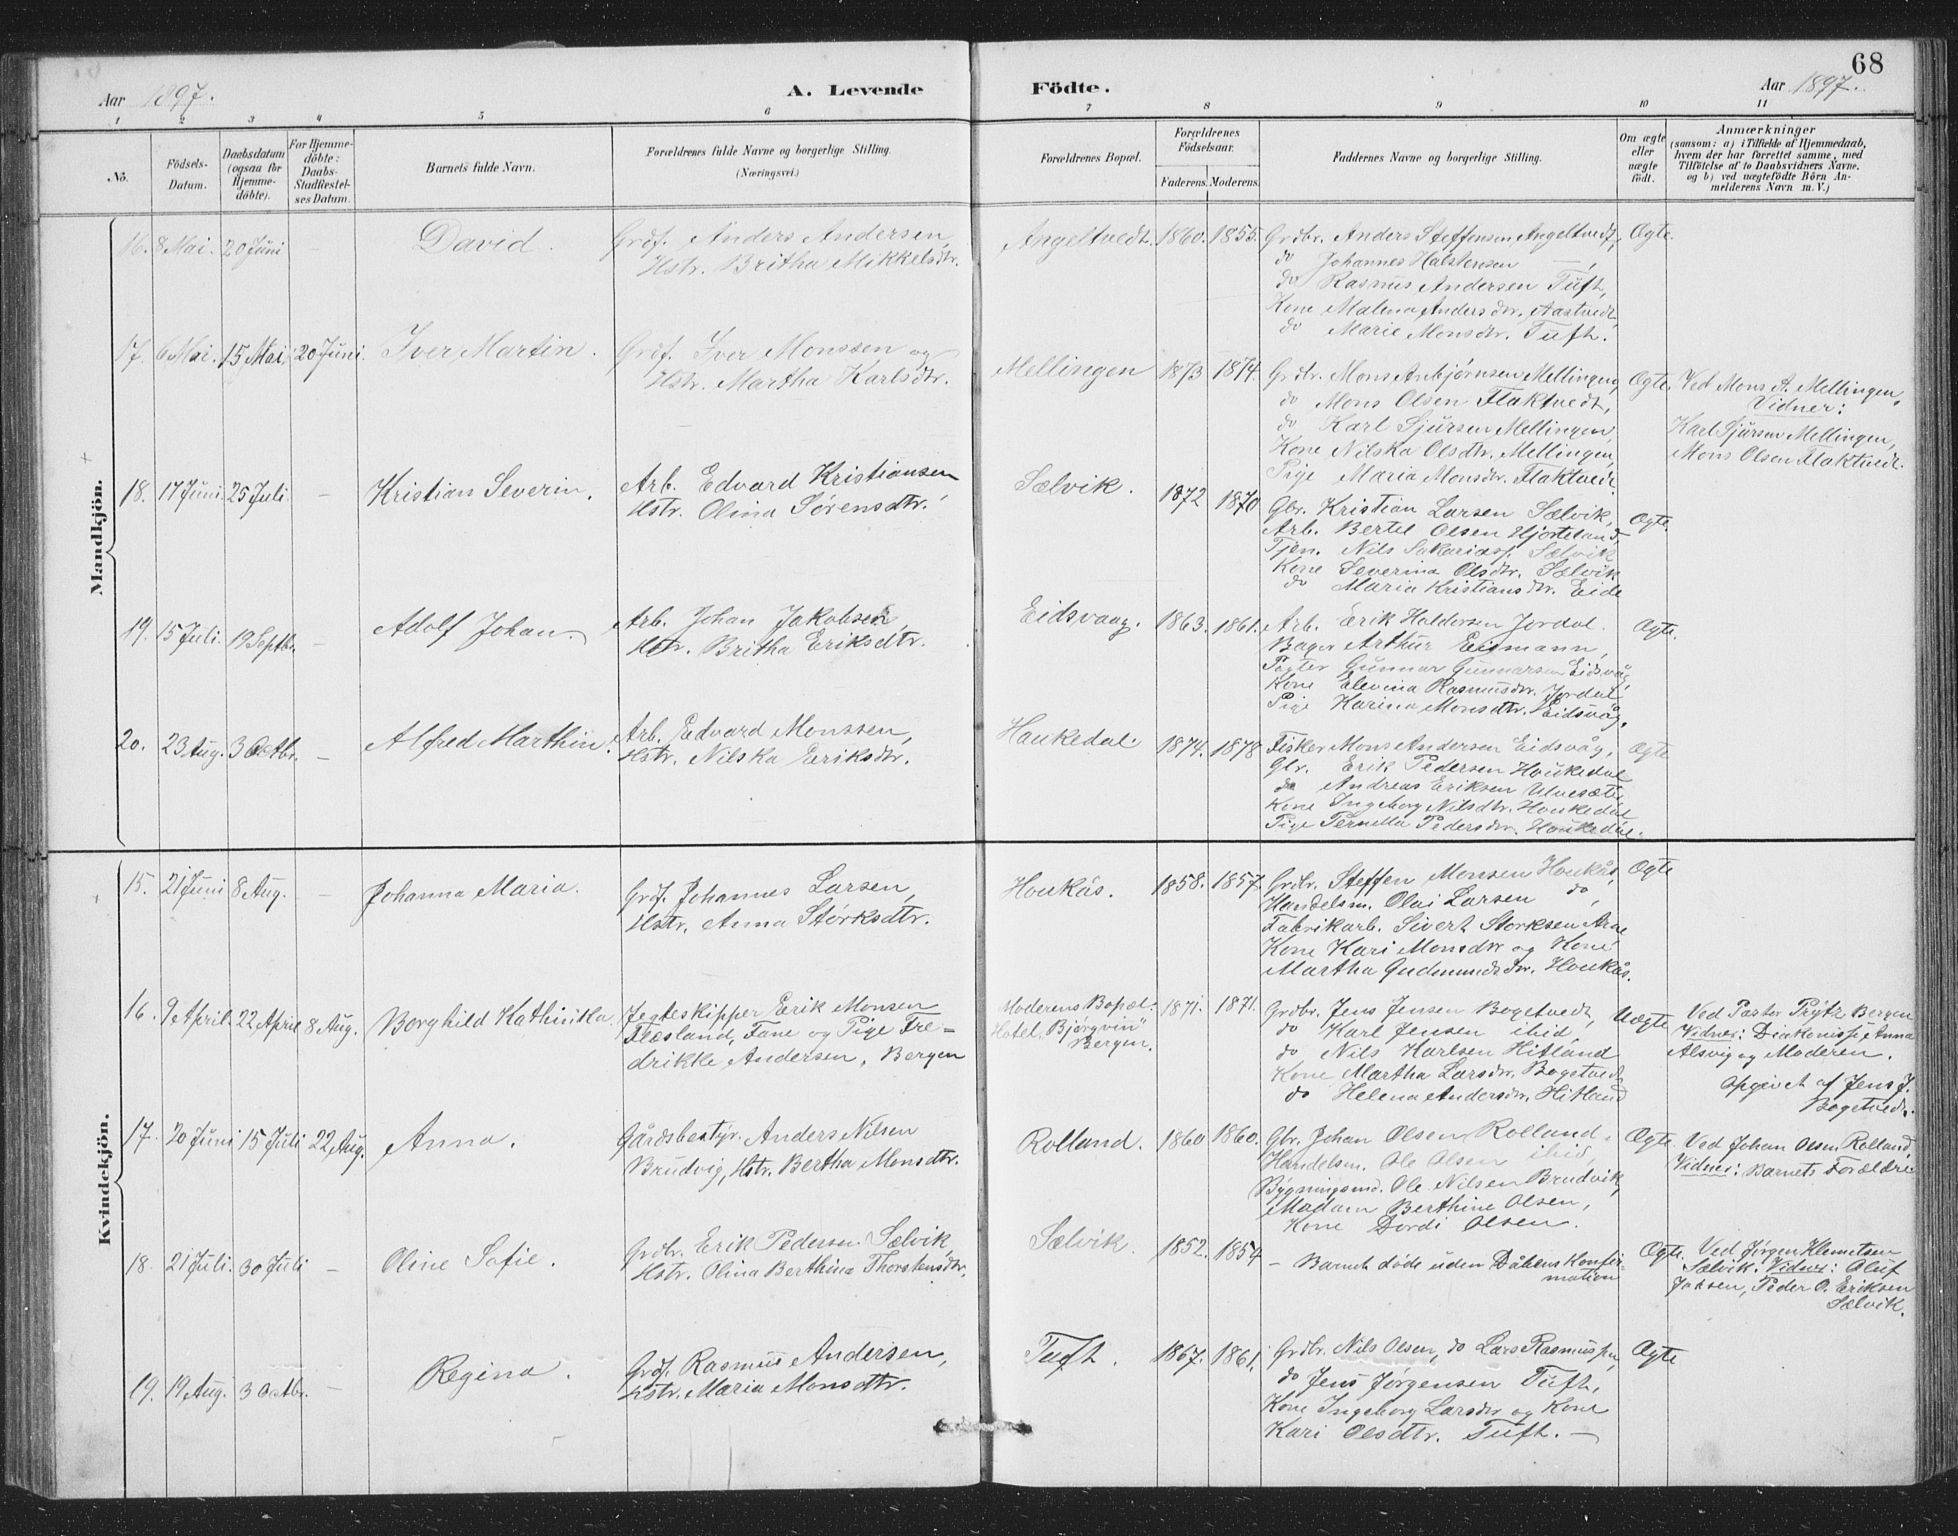 68
Aar 1897.
A. Levende Födte.
Aar 1897.
1 2 3 4 5 6 7 8 9 10 11
No.
Födsels-
Datum.
Daabsdatum
(ogsaa for
Hjemme-
döbte).
For Hjemme-
döbte:
Daabs-
Stadfæstel-
ses Datum.
Barnets fulde Navn.
Forældrenes fulde Navne og borgerlige Stilling.
(Næringsvei.)
Forældrenes Bopæl.
Forældrenes
Födselsaar.
Faderens. Moderens.
Faddernes Navne og borgerlige Stilling.
Om ægte
eller
uægte
födt.
Anmærkninger
(saasom: a) i Tilfælde af Hjemmedaab,
hvem der har forrettet samme, med
Tilföielse af to Daabsvidners Navne,
og b) ved uægtefödte Börn An-
melderens Navn m. V.)
Mandkjön.
16. 8 Mai. 20 Juni — David. Grdf. Anders Andersen, Angeltvedt. 1860. 1855. Grdbr. Anders Steffensen Angeltvedt, Ægte.
Hstr. Britha Mikkelsdtr.
do Johannes Halstensen —,
do Rasmus Andersen Tuft,
Kone Malena Andersdtr. Aastvedt,
do Marie Monsdtr. Tuft.
17. 6 Mai. 15 Mai, 20 Juni. Iver Martin. Grdf. Iver Monssen og Mellingen 1873 1874. Grdbr. Mons Anbjørnsen Mellingen, Ægte. Ved Mons A. Mellingen,
Hstr. Martha Karlsdtr.
do Mons Olsen Flaktvedt, Vidner:
do Karl Sjursen Mellingen, Karl Sjursen Mellingen,
Kone Nilska Olsdtr. Mellingen, Mons Olsen Flaktvedt.
Pige Maria Monsdtr. Flaktvedt.
18. 17 Juni. 25 Juli. — Kristian Severin. Arb. Edvard Kristiansen Sælvik. 1872 1870 Gbr. Kristian Larsen Sælvik, Ægte.
Hstr. Olina Sørensdtr.
Arb. Bertel Olsen Hjorteland,
Tjen. Nils Sakarias. Sælvik
Kone Severina Olsdtr. Sælvik
do Maria Kristiansdtr. Eide
19. 15 Juli. 19 Septbr. — Adolf Johan. Arb. Johan Jakobsen, Eidsvaag. 1863. 1861. Arb. Erik Haldorsen Jordal. Ægte.
Hstr. Britha Eriksdtr.
Bager Arthur Eitmann,
Pagter Gunnar Gunnarsen Eidsvåg,
Kone Elevina Rasmusdtr. Jordal
Pige Karina Monsdtr. Eidsvåg.
20. 23 Aug. 3 Octbr. — Alfred Marthin. Arb. Edvard Monssen, Haukedal 1874. 1878 Fisker Mons Andersen Eidsvåg, Ægte
Hstr. Nilska Eriksdtr.
Gbr. Erik Pedersen Houkedal
do Andreas Eriksen Ulvesæter
Kone Ingeborg Nilsdtr. Houkedal
Pige Pernella Pedersdtr. Houkedal.
Kvindekjön.
15. 21 Juni 8 Aug. — Johanna Maria. Grdf. Johannes Larsen, Houkås. 1858. 1857 Grdbr. Steffen Monsen Houkås, Ægte
Hstr. Anna Størksdtr.
Handelsm. Olai Larsen do,
Fabrikarb. Sivert Storksen Arne
Kone Kari Monsdtr og Kone
Martha Gudmundsdtr. Houkås.
16. 9 April. 22 April 8 Aug. Borghild Kathinka. Jegteskipper Erik Monsen Moderens Bopæl: 1871. 1871. Grdbr. Jens Jensen Bogetvedt, Uægte Ved Pastor Prytz Bergen
Flæsland, Fane og Pige Fre- Hotel „Bjørgvin” do Karl Jensen ibid, Vidner: Diakonisse Anna
drikke Andersen, Bergen Bergen. do Nils Karlsen Hitland Alsvig og Moderen.
Kone Martha Larsdtr. Bogetvedt
do Helena Andersdtr. Hitland
Opgivet af Jens J.
Bogetvedt.
17. 20 Juni 15 Juli 22 Aug. Anna. Gårdsbestyr. Anders Nilsen Rolland. 1860 1860. Gbr. Johan Olsen Rolland. Ægte. Ved Johan Olsen Rolland,
Brudvig, Hstr. Bertha Monsdtr. Handelsm. Ole Olsen ibid, Vidner: Barnets Forældre
Bygningsmd. Ole Nilsen Brudvik,
Madam Berthine Olsen,
Kone Dordi Olsen.
18. 21 Juli. 30 Juli — Oline Sofie. Grdbr. Erik Pedersen Sælvik, Sælvik. 1852. 1854 — Barnet døde uden Dåbens Konfir- Ægte. Ved Jørgen Klemetsen
Hstr. Olina Berthina Thorstensdtr. mation Sælvik. Vidner: Oluf
Jansen, Peder O. Eriksen
Sælvik.
19. 19 Aug. 3 Octbr. — Regina. Grdf. Rasmus Andersen, Tuft. 1867. 1861. Grdbr. Nils Olsen, do Lars Rasmussen, Ægte
Hstr. Maria Monsdtr.
do Jens Jørgensen Tuft,
Kone Ingeborg Larsdtr og Kone
Kari Olsdtr. Tuft. —